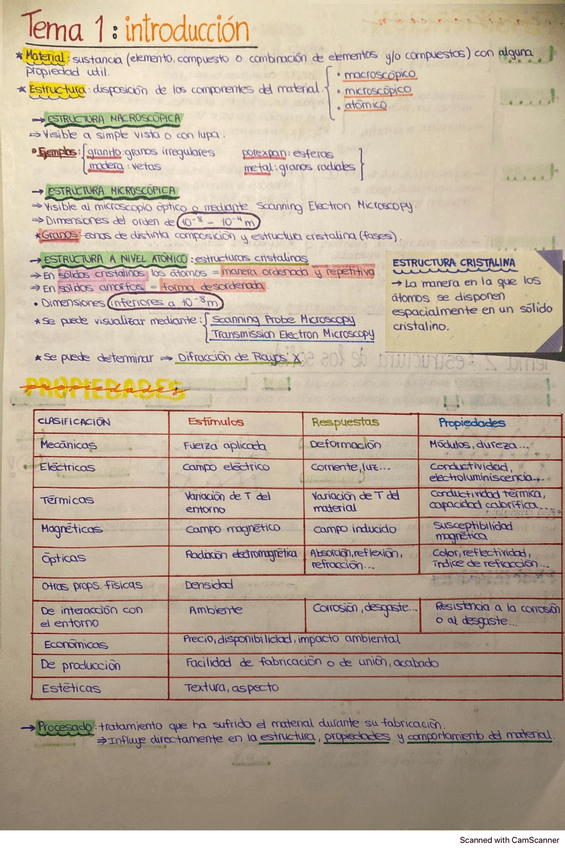 Tema 1: introducción
* Material: sustancia (elemento, compuesto o combinación de elementos y/o compuestos) con alguna
propiedad útil.
* Estructura: disposición de los componentes del material.
• macroscópico
• microscópico
• atómico
→ ESTRUCTURA MACROSCÓPICA
⇒ Visible a simple vista o con lupa.
• Ejemplos: granito: granos irregulares porexpan: esferas
madera: vetas metal: granos radiales
→ ESTRUCTURA MICROSCÓPICA
⇒ Visible al microscopio óptico o mediante Scanning Electron Microscopy.
⇒ Dimensiones del orden de 10⁻⁸ – 10⁻⁴ m
* Granos: zonas de distinta composición y estructura cristalina (fases).
→ ESTRUCTURA A NIVEL ATÓMICO: estructuras cristalinas
⇒ En sólidos cristalinos los átomos = manera ordenada y repetitiva
⇒ En sólidos amorfos = forma desordenada
• Dimensiones inferiores a 10⁻⁸ m
* Se puede visualizar mediante: Scanning Probe Microscopy
Transmission Electron Microscopy
* Se puede determinar ⇒ Difracción de Rayos X
ESTRUCTURA CRISTALINA
→ La manera en la que los
átomos se disponen
espacialmente en un sólido
cristalino.
PROPIEDADES
CLASIFICACIÓN Estímulos Respuestas Propiedades
Mecánicas Fuerza aplicada Deformación Módulos, dureza...
Eléctricas Campo eléctrico Corriente, luz... Conductividad,
electroluminiscencia...
Térmicas Variación de T del Variación de T del Conductividad térmica,
entorno material capacidad calorífica...
Magnéticas Campo magnético Campo inducido Susceptibilidad
magnética
Ópticas Radiación electromagnética Absorción, reflexión, Color, reflectividad,
refracción... índice de refracción...
Otras props. físicas Densidad
De interacción con Ambiente Corrosión, desgaste... Resistencia a la corrosión
el entorno o al desgaste...
Económicas Precio, disponibilidad, impacto ambiental
De producción Facilidad de fabricación o de unión, acabado
Estéticas Textura, aspecto
→ Procesado: tratamiento que ha sufrido el material durante su fabricación.
⇒ Influye directamente en la estructura, propiedades y comportamiento del material.
Scanned with CamScanner